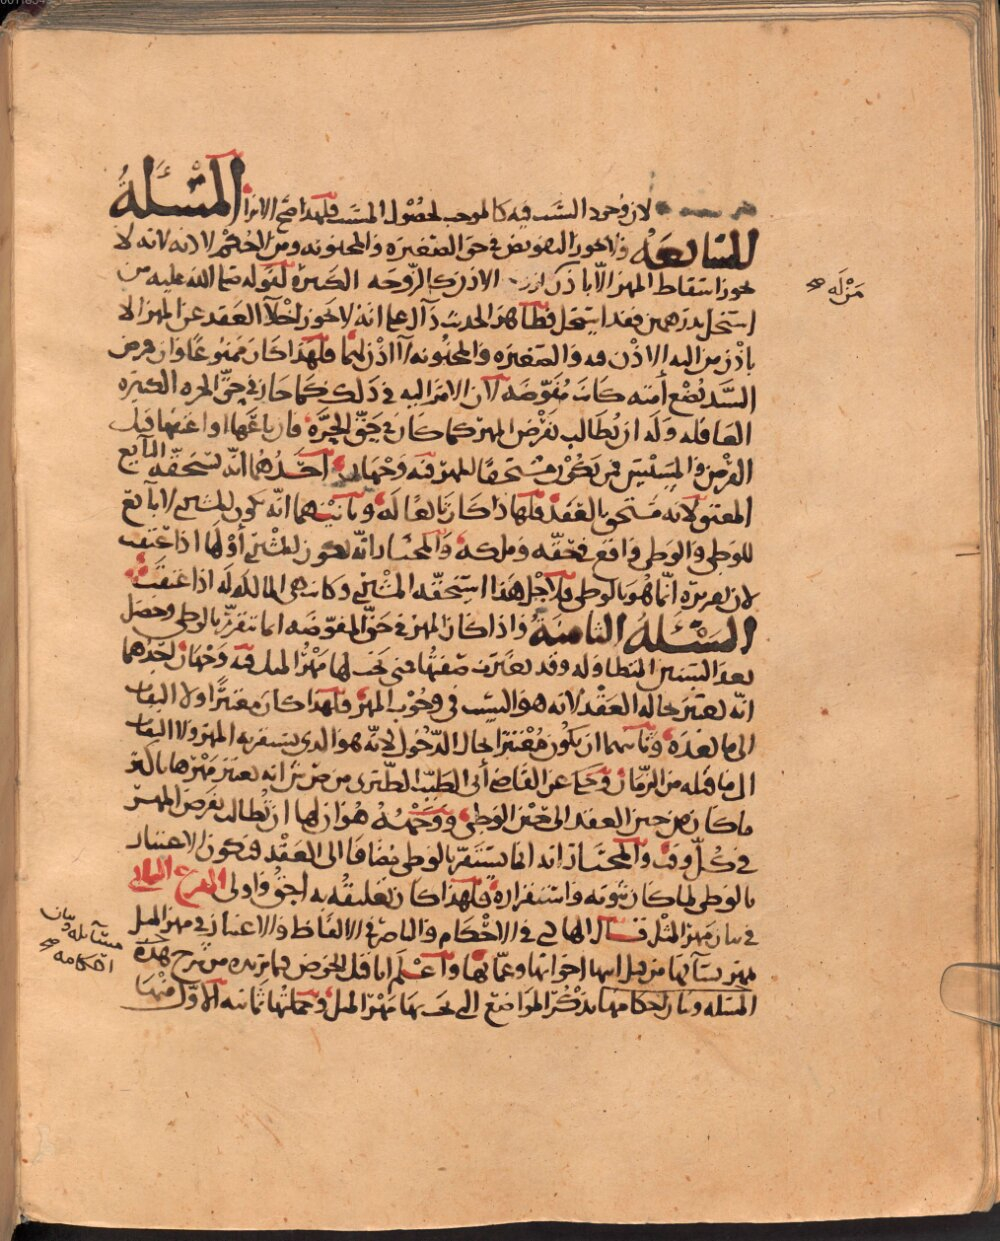 لان وجود السبب فيه كالموجب لحصول المسبب فلهذا صح الابراء المسئلة
السابعة ولا يجوز التفويض في حق الصغيرة والمجنونة ومن لا حكم لاذنه لانه لا
يجوز اسقاط المهر الا باذن الا ذلك الزوجة الكبيرة لقوله صلى الله عليه من
استحل بدرهمين فقد استحل فظاهر الحديث دال على انه لا يجوز اخلاء العقد عن المهر الا
باذن من اليه الاذن فيه والصغيرة والمجنونة لا اذن لهما فلهذا كان ممنوعا وان فوض
السيد بضع أمته كانت مفوضة لان الامر اليه في ذلك كما جاز في حق المرة الكبيرة
العاقلة وله ان يطالب بفرض المهر كما كان في حق الحرة فان باعها او اعتقها قبل
الفرض والمسيس فمن يكون مستحقا للمهر فيه وجهان احدهما انه يستحقه البايع
المعتق لانه مستحق بالعقد فلهذا كان تابعا له وثانيهما انه يكون للمشتري لانه تابع
للوطى والوطى واقع في حقه وملكه والمختار انه يكون للمشتري أو لها اذا عتقت
لان تقريره انما هو بالوطى فلاجل هذا استحقه المشتري وكانت هي المالكة له اذا عتقت
المسئلة الثامنة واذا كان المهر في حق المفوضة انما يتقرر بالوطى وحصل
بعد السنين المتطاولة وقد تغيرت صفتها فمتى يجب لها مهر المثل فيه وجهان احدهما
انه يعتبر حالة العقد لانه هو السبب في وجوب المهر فلهذا كان معتبرا ولا التفات
الى ما بعده وثانيهما ان يكون معتبرا حال الدخول لانه هو الذي يستقر به المهر ولا التفات
الى ما قبله من الزمان وحكى عن القاضي أبي الطيب الطبري من انه يعتبر مهرها باكثر
ما كان من حين العقد الى حين الوطى ووجهه هو ان لها ان تطالب بفرض المهر
في كل وقت والمختار انه انما يستقر بالوطى مضافا الى العقد فيكون الاعتبار
بالوطى لما كان ثبوته واستقراره فلهذا كان تعليقه به احق واولى الفرع الثاني
في بيان مهر المثل قال الهادي في الاحكام والناصر في الالفاظ والاعتبار في مهر المثل
مهر نسآئها من قبل ابيها اخواتها وعماتها واعلم انا قبل الخوض فيما نريده من شرح هذه
المسئلة وبيان احكامها نذكر المواضع التي يجب بها مهر المثل وجملتها ثمانية الاول منها
منزله
مسآئله وبيان
احكامه